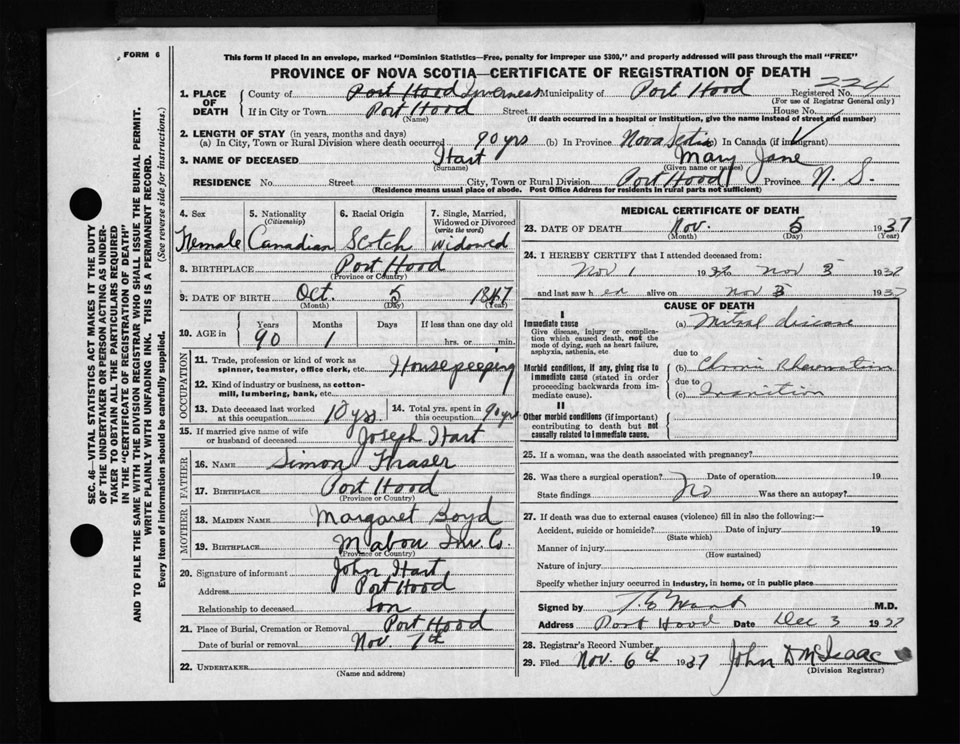 FORM 6
This form if placed in an envelope, marked "Dominion Statistics—Free, penalty for improper use $300," and properly addressed will pass through the mail "FREE"
PROVINCE OF NOVA SCOTIA—CERTIFICATE OF REGISTRATION OF DEATH
224
1. PLACE OF DEATH County of Port Hood Inverness Municipality of Port Hood Registered No.
(For use of Registrar General only)
If in City or Town Port Hood Street House No.
(Name) (If death occurred in a hospital or institution, give the name instead of street and number)
2. LENGTH OF STAY (in years, months and days)
(a) In City, Town or Rural Division where death occurred 90 yrs (b) In Province Nova Scotia In Canada (if immigrant)
3. NAME OF DECEASED Hart Mary Jane
(Surname) (Given name or names)
RESIDENCE No. Street City, Town or Rural Division Port Hood Province N. S.
(Residence means usual place of abode. Post Office Address for residents in rural parts not sufficient)
4. Sex 5. Nationality (Citizenship) 6. Racial Origin 7. Single, Married, Widowed or Divorced (write the word)
Female Canadian Scotch Widowed
8. BIRTHPLACE Port Hood
(Province or Country)
9. DATE OF BIRTH Oct. 5 1847
(Month) (Day) (Year)
10. AGE in Years Months Days If less than one day old
90 1 hrs. or min.
OCCUPATION
11. Trade, profession or kind of work as spinner, teamster, office clerk, etc. Housepeeping
12. Kind of industry or business, as cotton-mill, lumbering, bank, etc.
13. Date deceased last worked at this occupation 10 yrs. 14. Total yrs. spent in this occupation 90 yrs
15. If married give name of wife or husband of deceased Joseph Hart
FATHER
16. NAME Simon Fraser
17. BIRTHPLACE Port Hood
(Province or Country)
MOTHER
18. MAIDEN NAME Margaret Boyd
19. BIRTHPLACE Mabou Inv. Co.
(Province or Country)
20. Signature of informant John Hart
Address Port Hood
Relationship to deceased Son
21. Place of Burial, Cremation or Removal Port Hood
Date of burial or removal Nov. 7th
22. UNDERTAKER
(Name and address)
MEDICAL CERTIFICATE OF DEATH
23. DATE OF DEATH Nov. 5 1937
(Month) (Day) (Year)
24. I HEREBY CERTIFY that I attended deceased from:
Nov 1 193 to Nov 5 1937
and last saw her alive on Nov 5 1937
CAUSE OF DEATH
I
Immediate cause (a) Mitral disease
Give disease, injury or complication which caused death, not the mode of dying, such as heart failure, asphyxia, asthenia, etc
due to
Morbid conditions, if any, giving rise to immediate cause (stated in order proceeding backwards from immediate cause). (b) Chronic Rheumatism
due to
(c) Inanition
II
Other morbid conditions (if important) contributing to death but not causally related to immediate cause.
25. If a woman, was the death associated with pregnancy?
26. Was there a surgical operation? No Date of operation 19
State findings Was there an autopsy?
27. If death was due to external causes (violence) fill in also the following:—
Accident, suicide or homicide? Date of injury 19
(State which)
Manner of injury
(How sustained)
Nature of injury
Specify whether injury occurred in industry, in home, or in public place
Signed by M.D.
Address Port Hood Date Dec 3 1937
28. Registrar's Record Number
29. Filed Nov. 6th 1937 John D McIsaac
(Division Registrar)
SEC. 46—VITAL STATISTICS ACT MAKES IT THE DUTY
OF THE UNDERTAKER OR PERSON ACTING AS UNDER-
TAKER TO OBTAIN ALL THE PARTICULARS REQUIRED
IN THE "CERTIFICATE OF REGISTRATION OF DEATH"
AND TO FILE THE SAME WITH THE DIVISION REGISTRAR WHO SHALL ISSUE THE BURIAL PERMIT.
WRITE PLAINLY WITH UNFADING INK. THIS IS A PERMANENT RECORD.
Every item of information should be carefully supplied. (See reverse side for instructions.)